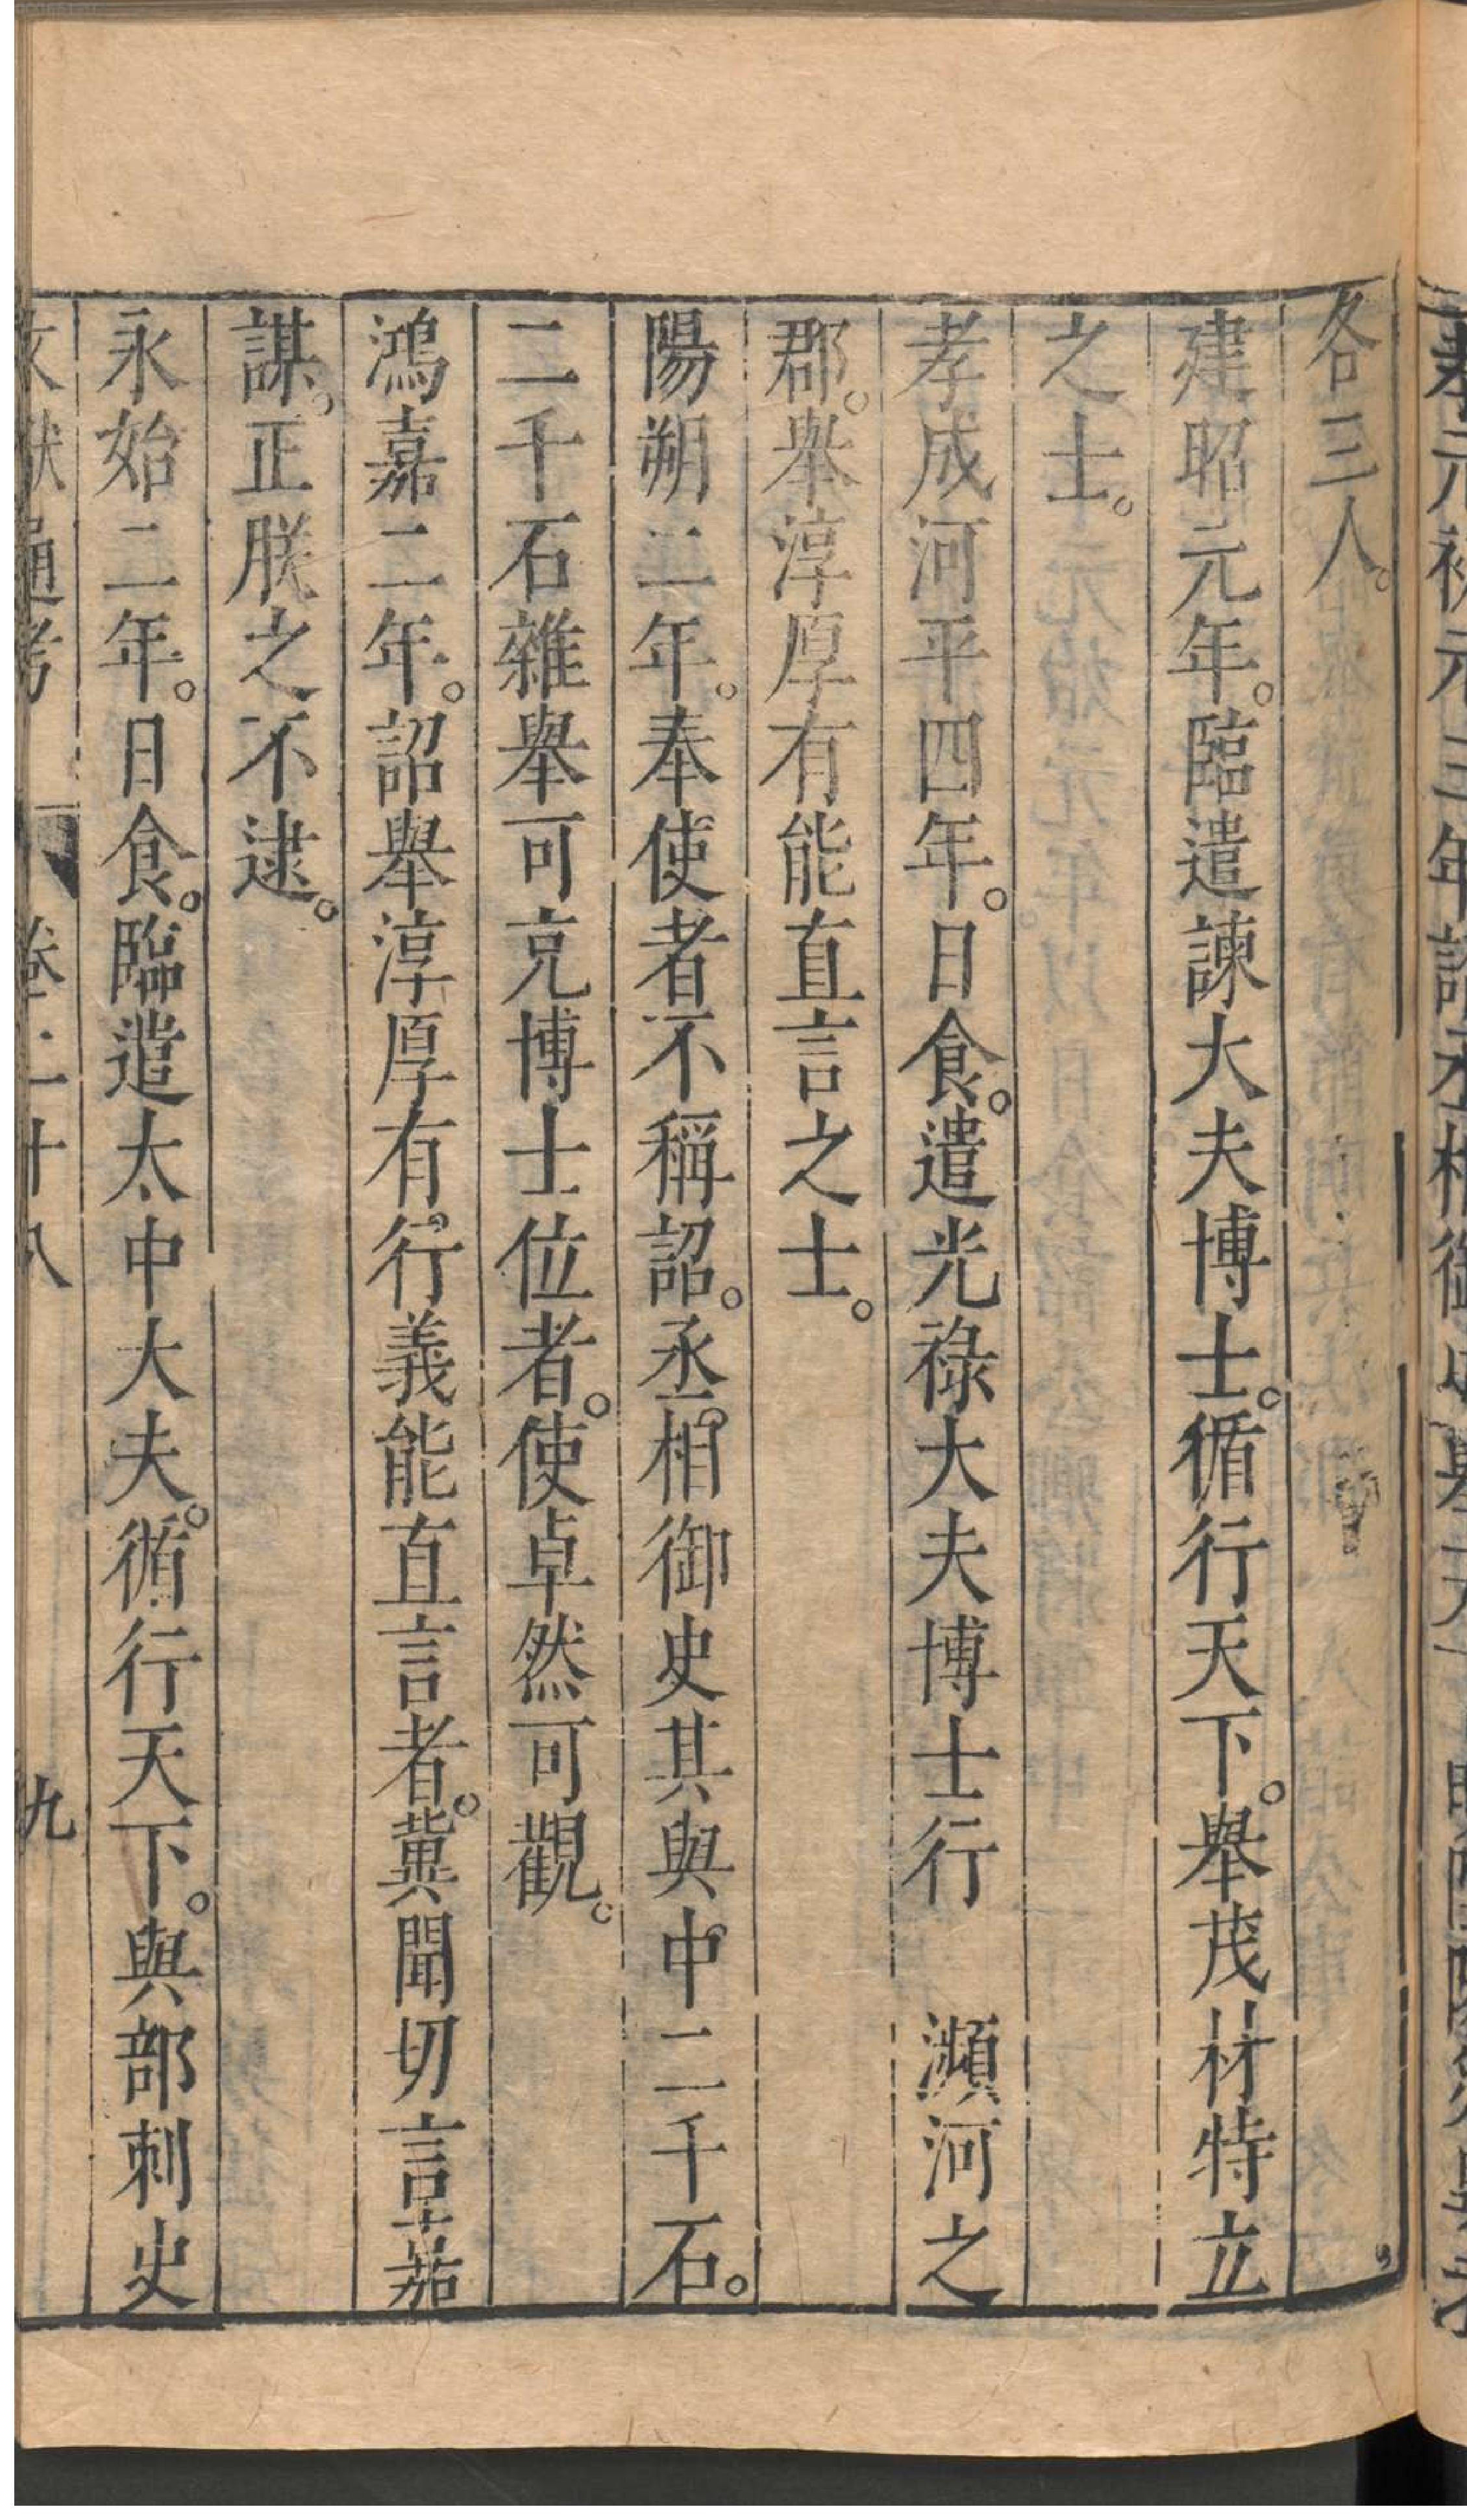 各三人。
建昭元年。臨遣諫大夫博士。循行天下。舉茂材特立
之士。
孝成河平四年。日食。遣光祿大夫博士行　瀕河之
郡。舉淳厚有能直言之士。
陽朔二年。奉使者不稱詔。丞相御史其與中二千石。
二千石雜舉可克博士位者。使卓然可觀。
鴻嘉二年。詔舉淳厚有行義能直言者。冀聞切言嘉
謀。正朕之不逮。
永始二年。日食。臨遣太中大夫。循行天下。與部刺史
文獻通考　卷二十八　九